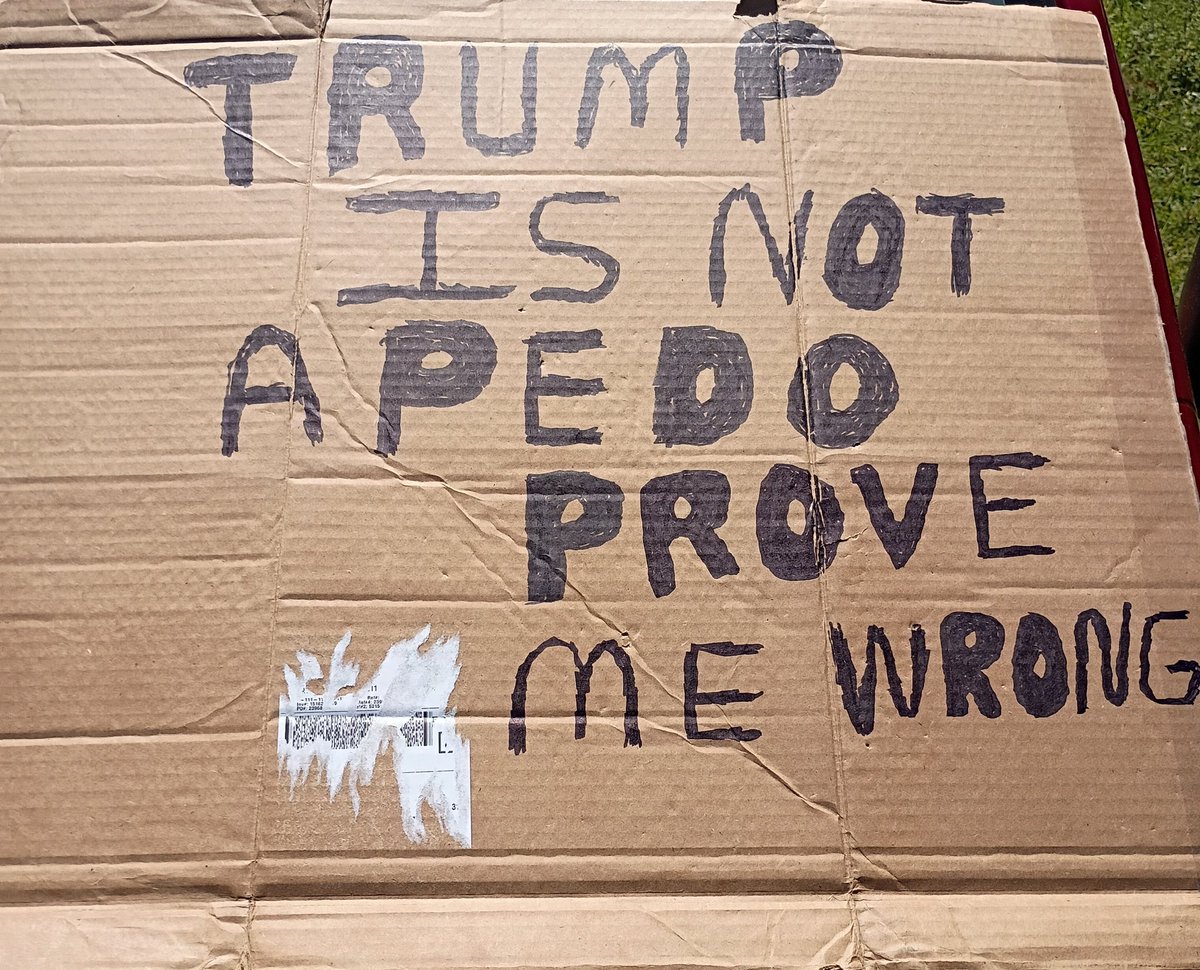 TRUMP
IS NOT
A PEDO
PROVE
ME WRONG